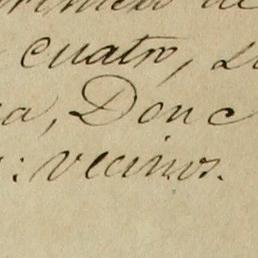 de
cuatro,
a, Don C
: vecinos.